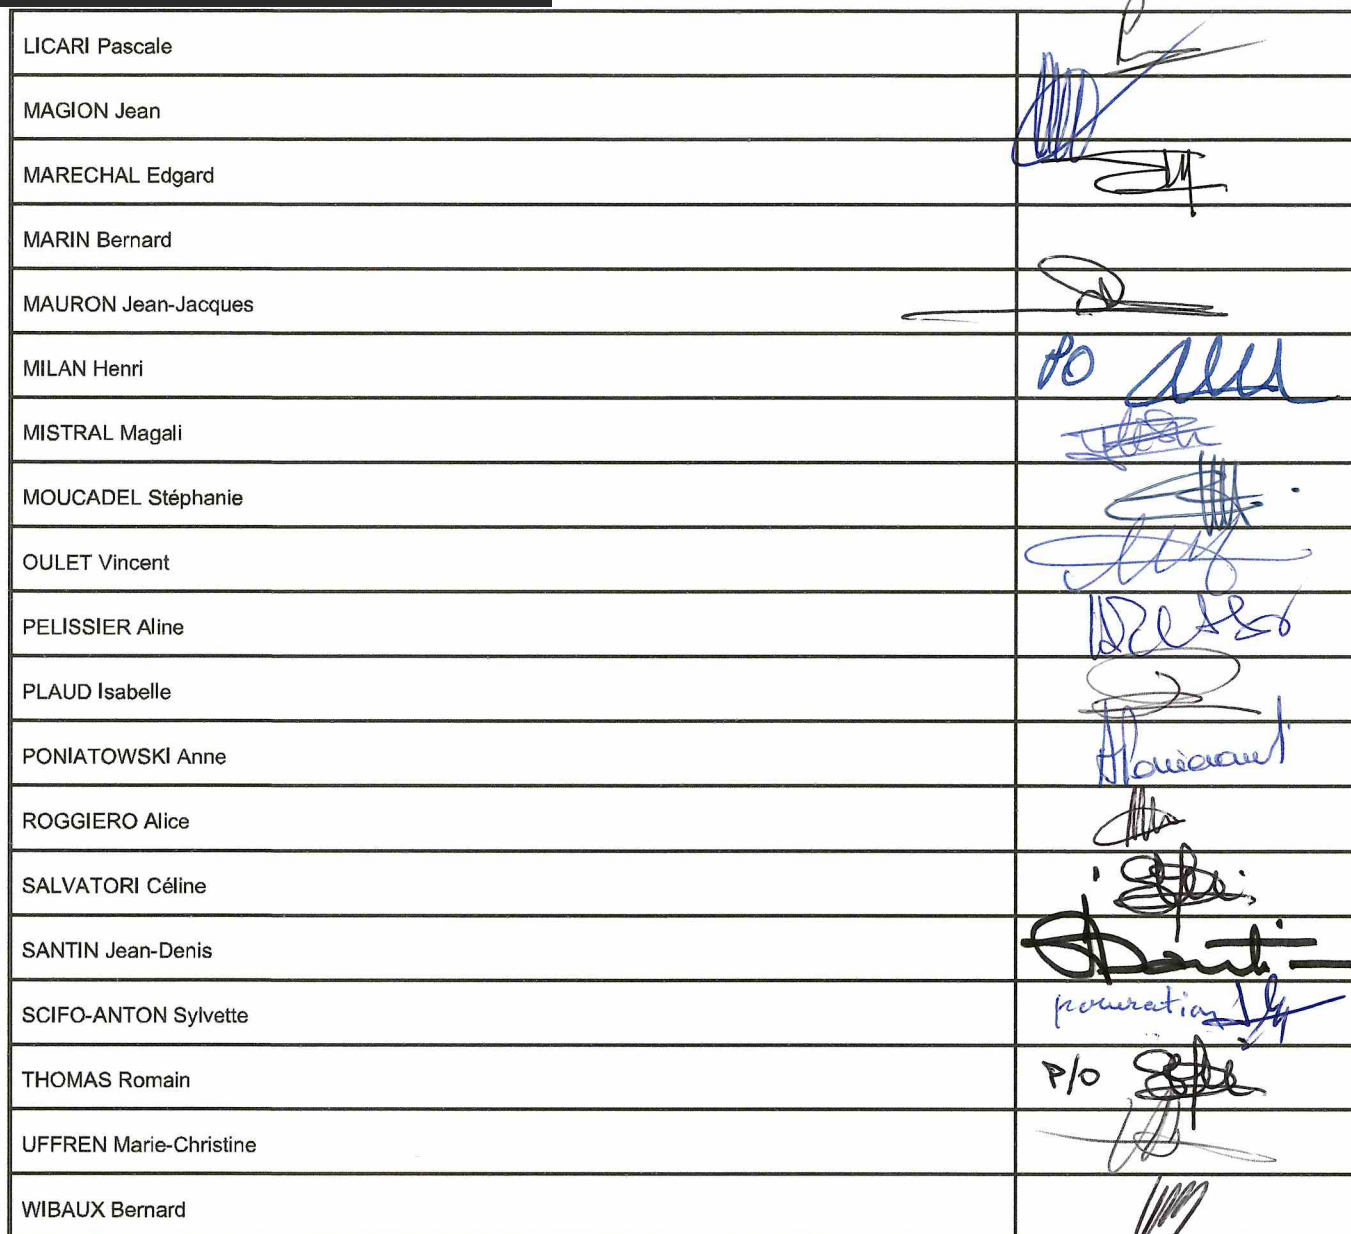 LICARI Pascale
MAGION Jean
MARECHAL Edgard
MARIN Bernard
MAURON Jean-Jacques
MILAN Henri PO
MISTRAL Magali
MOUCADEL Stéphanie
OULET Vincent
PELISSIER Aline
PLAUD Isabelle
PONIATOWSKI Anne
ROGGIERO Alice
SALVATORI Céline
SANTIN Jean-Denis
SCIFO-ANTON Sylvette procuration
THOMAS Romain P/O
UFFREN Marie-Christine
WIBAUX Bernard